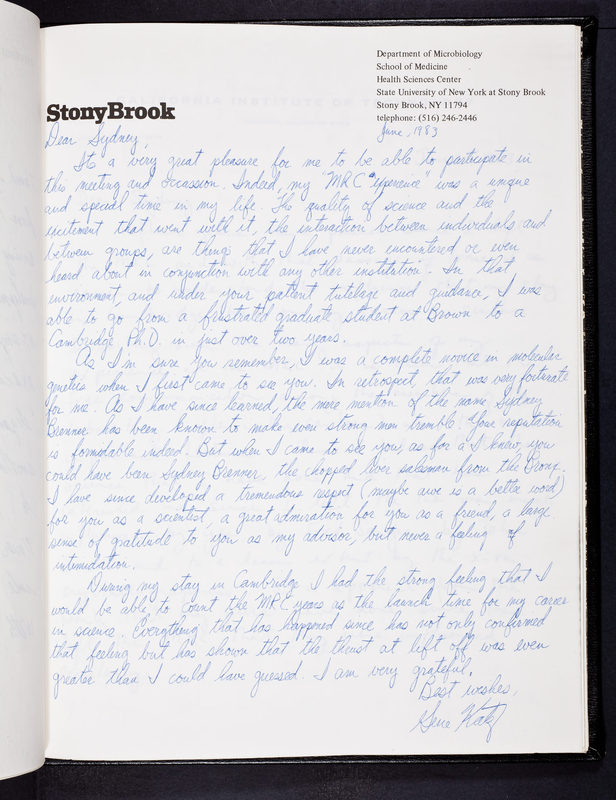 Department of Microbiology
School of Medicine
Health Sciences Center
State University of New York at Stony Brook
Stony Brook, NY 11794
telephone: (516) 246-2446
StonyBrook
June, 1983
Dear Sydney,
It's a very great pleasure for me to be able to participate in
this meeting and occassion. Indeed, my "MRC "experience" was a unique
and special time in my life. The quality of science and the
excitment that went with it, the interaction between individuals and
between groups, are things that I have never encountered or even
heard about in conjunction with any other institution. In that
environment, and under your patient tutelage and guidance, I was
able to go from a frustrated graduate student at Brown to a
Cambridge Ph.D. in just over two years.
As I'm sure you remember, I was a complete novice in molecular
genetics when I first came to see you. In retrospect, that was very fortunate
for me. As I have since learned, the mere mention of the name Sydney
Brenner has been known to make even strong men tremble. Your reputation
is formidable indeed. But when I came to see you, as far a I knew, you
could have been Sydney Brenner, the chopped liver salesman from the Bronx.
I have since developed a tremendous respect (maybe awe is a better word)
for you as a scientist, a great admiration for you as a friend, a large
sense of gratitude to you as my advisor, but never a feeling of
intimidation.
During my stay in Cambridge I had the strong feeling that I
would be able to count the MRC years as the launch time for my career
in science. Everything that has happened since has not only confirmed
that feeling but has shown that the thrust at lift off was even
greater than I could have guessed. I am very grateful.
Best wishes,
Gene Katz